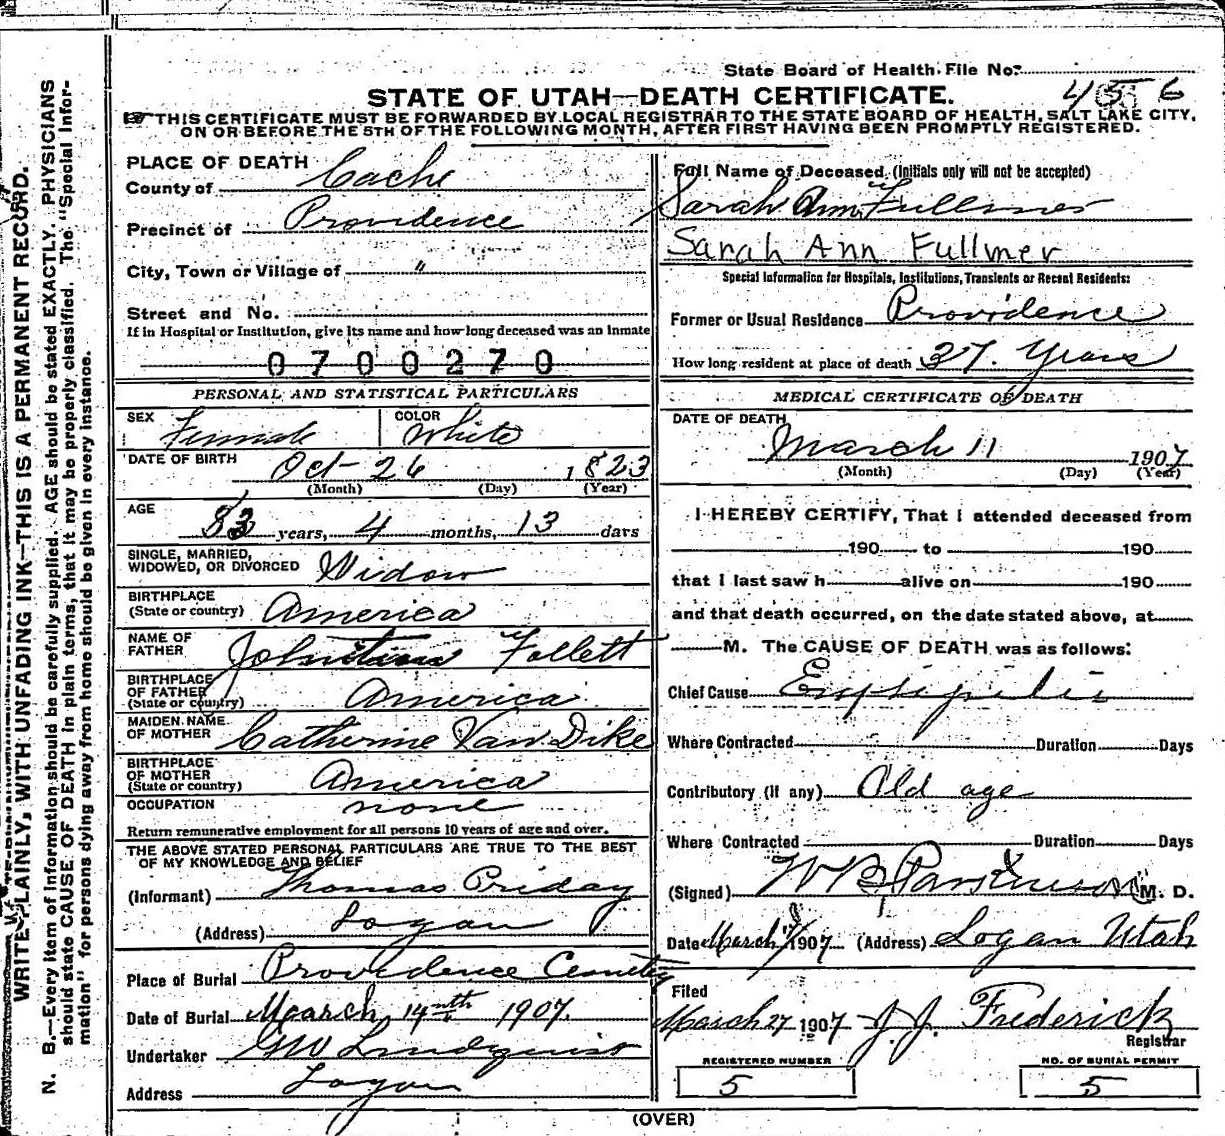 State Board of Health File No. 456
STATE OF UTAH—DEATH CERTIFICATE.
☞ THIS CERTIFICATE MUST BE FORWARDED BY LOCAL REGISTRAR TO THE STATE BOARD OF HEALTH, SALT LAKE CITY,
ON OR BEFORE THE 5TH OF THE FOLLOWING MONTH, AFTER FIRST HAVING BEEN PROMPTLY REGISTERED.
PLACE OF DEATH
County of Cache
Precinct of Providence
City, Town or Village of "
Street and No.
If in Hospital or Institution, give its name and how long deceased was an inmate
0700270
PERSONAL AND STATISTICAL PARTICULARS
SEX Female COLOR White
DATE OF BIRTH Oct- 26 1823
(Month) (Day) (Year)
AGE 83 years, 4 months, 13 days
SINGLE, MARRIED,
WIDOWED, OR DIVORCED Widow
BIRTHPLACE
(State or country) America
NAME OF
FATHER Follett
BIRTHPLACE
OF FATHER
(State or country) America
MAIDEN NAME
OF MOTHER Catherine Van Dike
BIRTHPLACE
OF MOTHER
(State or country) America
OCCUPATION none
Return remunerative employment for all persons 10 years of age and over.
THE ABOVE STATED PERSONAL PARTICULARS ARE TRUE TO THE BEST
OF MY KNOWLEDGE AND BELIEF
(Informant) Thomas Priday
(Address) Logan
Place of Burial Providence Cemetery
Date of Burial March 14th 1907.
Undertaker GW Lindquist
Address Logan
Full Name of Deceased (Initials only will not be accepted)
Sarah Ann Fullmer
Sarah Ann Fullmer
Special Information for Hospitals, Institutions, Transients or Recent Residents:
Former or Usual Residence Providence
How long resident at place of death 37. Years
MEDICAL CERTIFICATE OF DEATH
DATE OF DEATH
March 11 1907
(Month) (Day) (Year)
I HEREBY CERTIFY, That I attended deceased from
190 to 190
that I last saw h alive on 190
and that death occurred, on the date stated above, at
M. The CAUSE OF DEATH was as follows:
Chief Cause Erysipelis
Where Contracted Duration Days
Contributory (if any) Old age
Where Contracted Duration Days
(Signed) W B Parkinson M. D.
Date March 1907 (Address) Logan Utah
Filed
March 27 1907 J. J. Frederick
Registrar
REGISTERED NUMBER NO. OF BURIAL PERMIT
5 5
(OVER)
WRITE PLAINLY, WITH UNFADING INK—THIS IS A PERMANENT RECORD.
N. B.—Every item of information should be carefully supplied. AGE should be stated EXACTLY. PHYSICIANS
should state CAUSE OF DEATH in plain terms, that it may be properly classified. The "Special Infor-
mation" for persons dying away from home should be given in every instance.